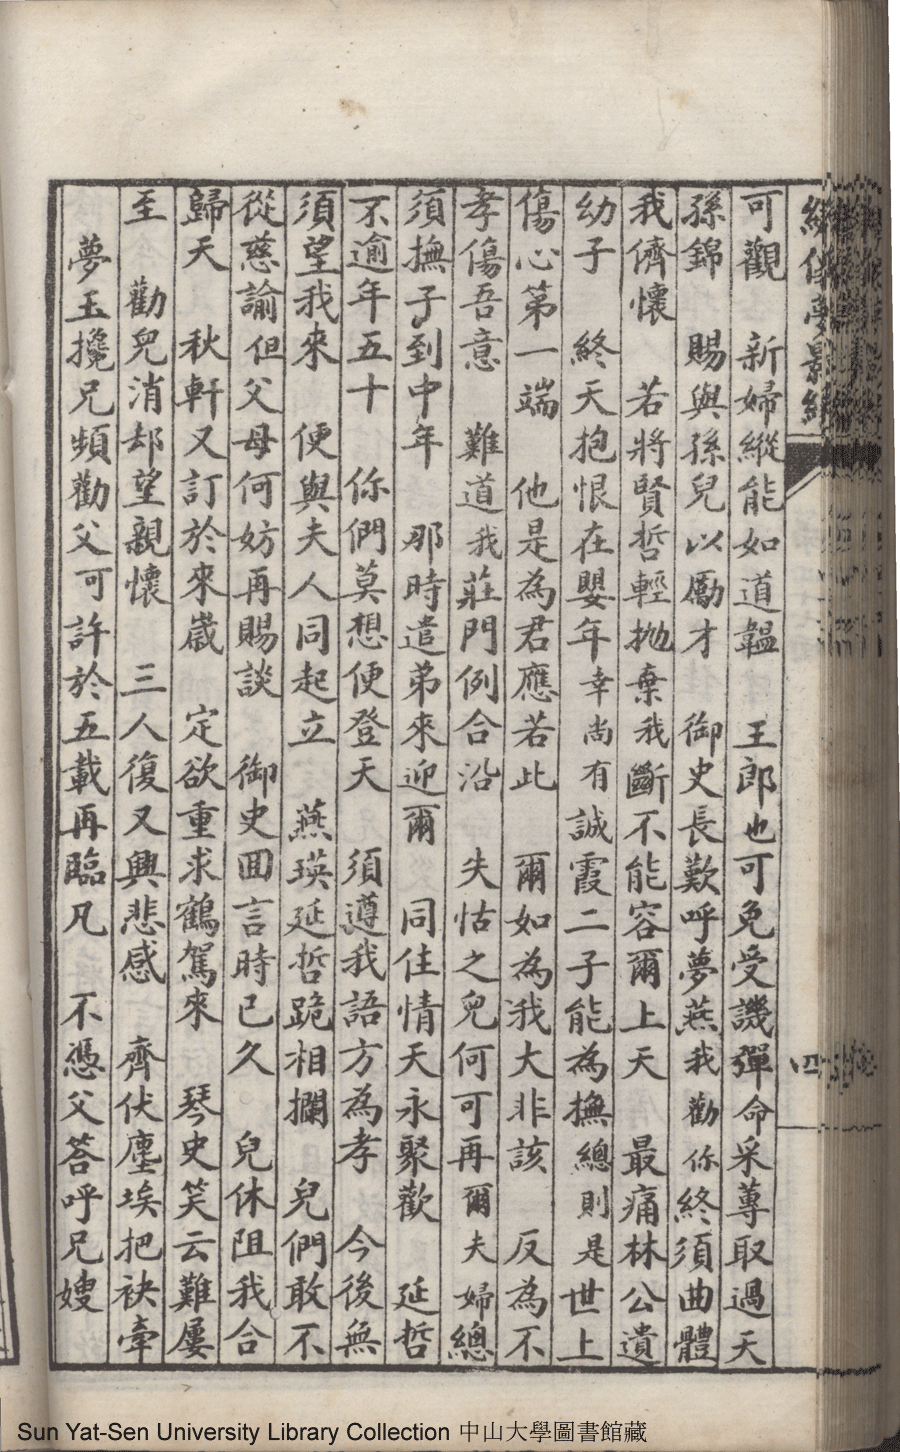 可觀　新婦縱能如道韞　王郎也可免受譏彈命采蓴取過天
孫錦　賜與孫兒以勵才　御史長歎呼夢燕我勸你終須曲體
我儕懷　若將賢哲輕抛棄我斷不能容爾上天　最痛林公遺
幼子　終天抱恨在嬰年幸尚有誠霞二子能為撫總則是世上
傷心第一端　他是為君應若此　爾如為我大非該　反為不
孝傷吾意　難道我莊門例合沿　失怙之兒何可再爾夫婦總
須撫子到中年　那時遣弟來迎爾　同住情天永聚歡　延哲
不逾年五十　你們莫想便登天　須遵我語方為孝　今後無
須望我來　便與夫人同起立　燕瑛延哲跪相攔　兒們敢不
從慈諭但父母何妨再賜談　御史回言時已久　兒休阻我合
歸天　秋軒又訂於來歲　定欲重求鶴駕來　琴史笑云難屢
至　勸兒消却望親懷　三人復又興悲感　齊伏塵埃把袂牽
夢玉攙兄頻勸父可許於五載再臨凡　不憑父答呼兄嫂
四
Sun Yat-Sen University Library Collection 中山大學圖書館藏